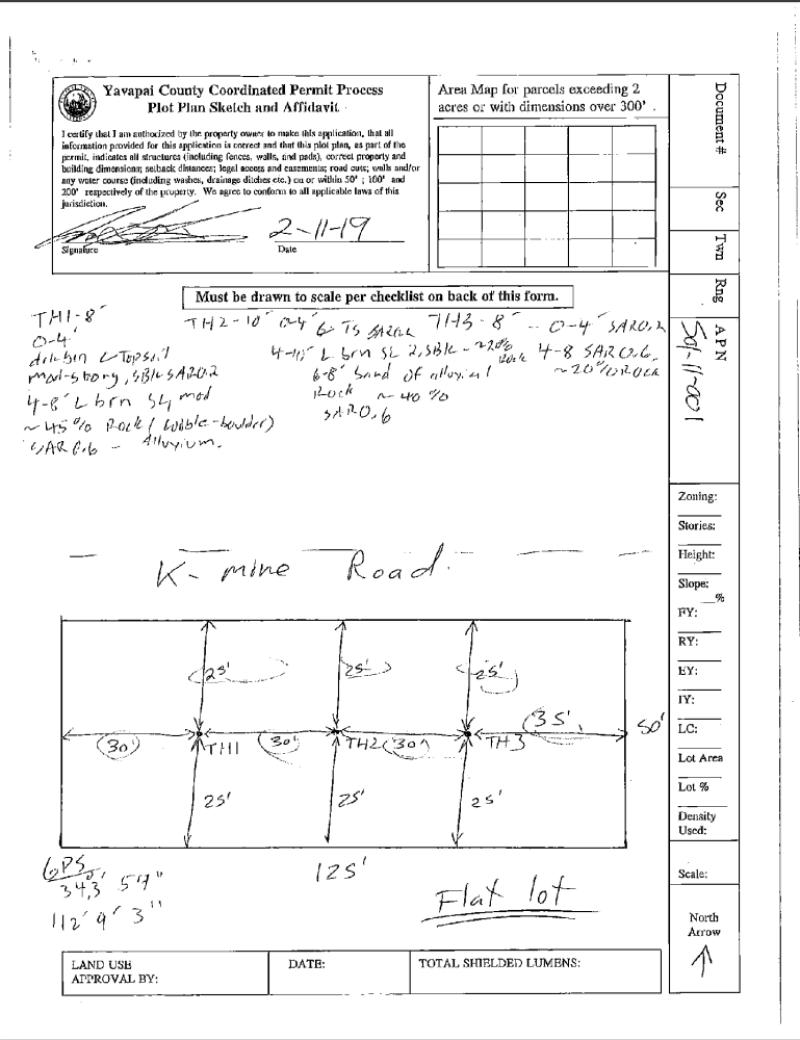 Yavapai County Coordinated Permit Process
Plot Plan Sketch and Affidavit
I certify that I am authorized by the property owner to make this application, that all
information provided for this application is correct and that this plot plan, as part of the
permit, indicates all structures (including fences, walls, and pads), correct property and
building dimensions; setback distances; legal access and easements; road cuts; wells and/or
any water course (including washes, drainage ditches etc.) on or within 50' ; 100' and
200' respectively of the property. We agree to conform to all applicable laws of this
jurisdiction.
2-11-19
Signature
Date
Area Map for parcels exceeding 2
acres or with dimensions over 300' .
Document #
Sec
Twn
Rng
APN
501-11-001
Must be drawn to scale per checklist on back of this form.
TH1-8'
0-4'
Topsoil
mod-strong, SBK SAR0.2
4-8' L brn SL, mod
~45% Rock (cobble-boulder)
SAR0.6 - Alluvium.
TH2-10' 0-4'
4-10' L brn SL 2,SBK - ~20% Rock
6-8' band of alluvial
Rock ~40%
SAR0.6
TH3-8' - 0-4' SAR0.2
4-8 SAR0.6.
~20% Rock
K-mine Road.
25'
25'
25'
30'
TH1
30'
TH2
30'
TH3
35'
50'
25'
25'
25'
125'
GPS
112° 9' 3"
Flat lot
Zoning:
Stories:
Height:
Slope:
%
FY:
RY:
EY:
IY:
LC:
Lot Area
Lot %
Density
Used:
Scale:
North
Arrow
LAND USE
APPROVAL BY:
DATE:
TOTAL SHIELDED LUMENS: